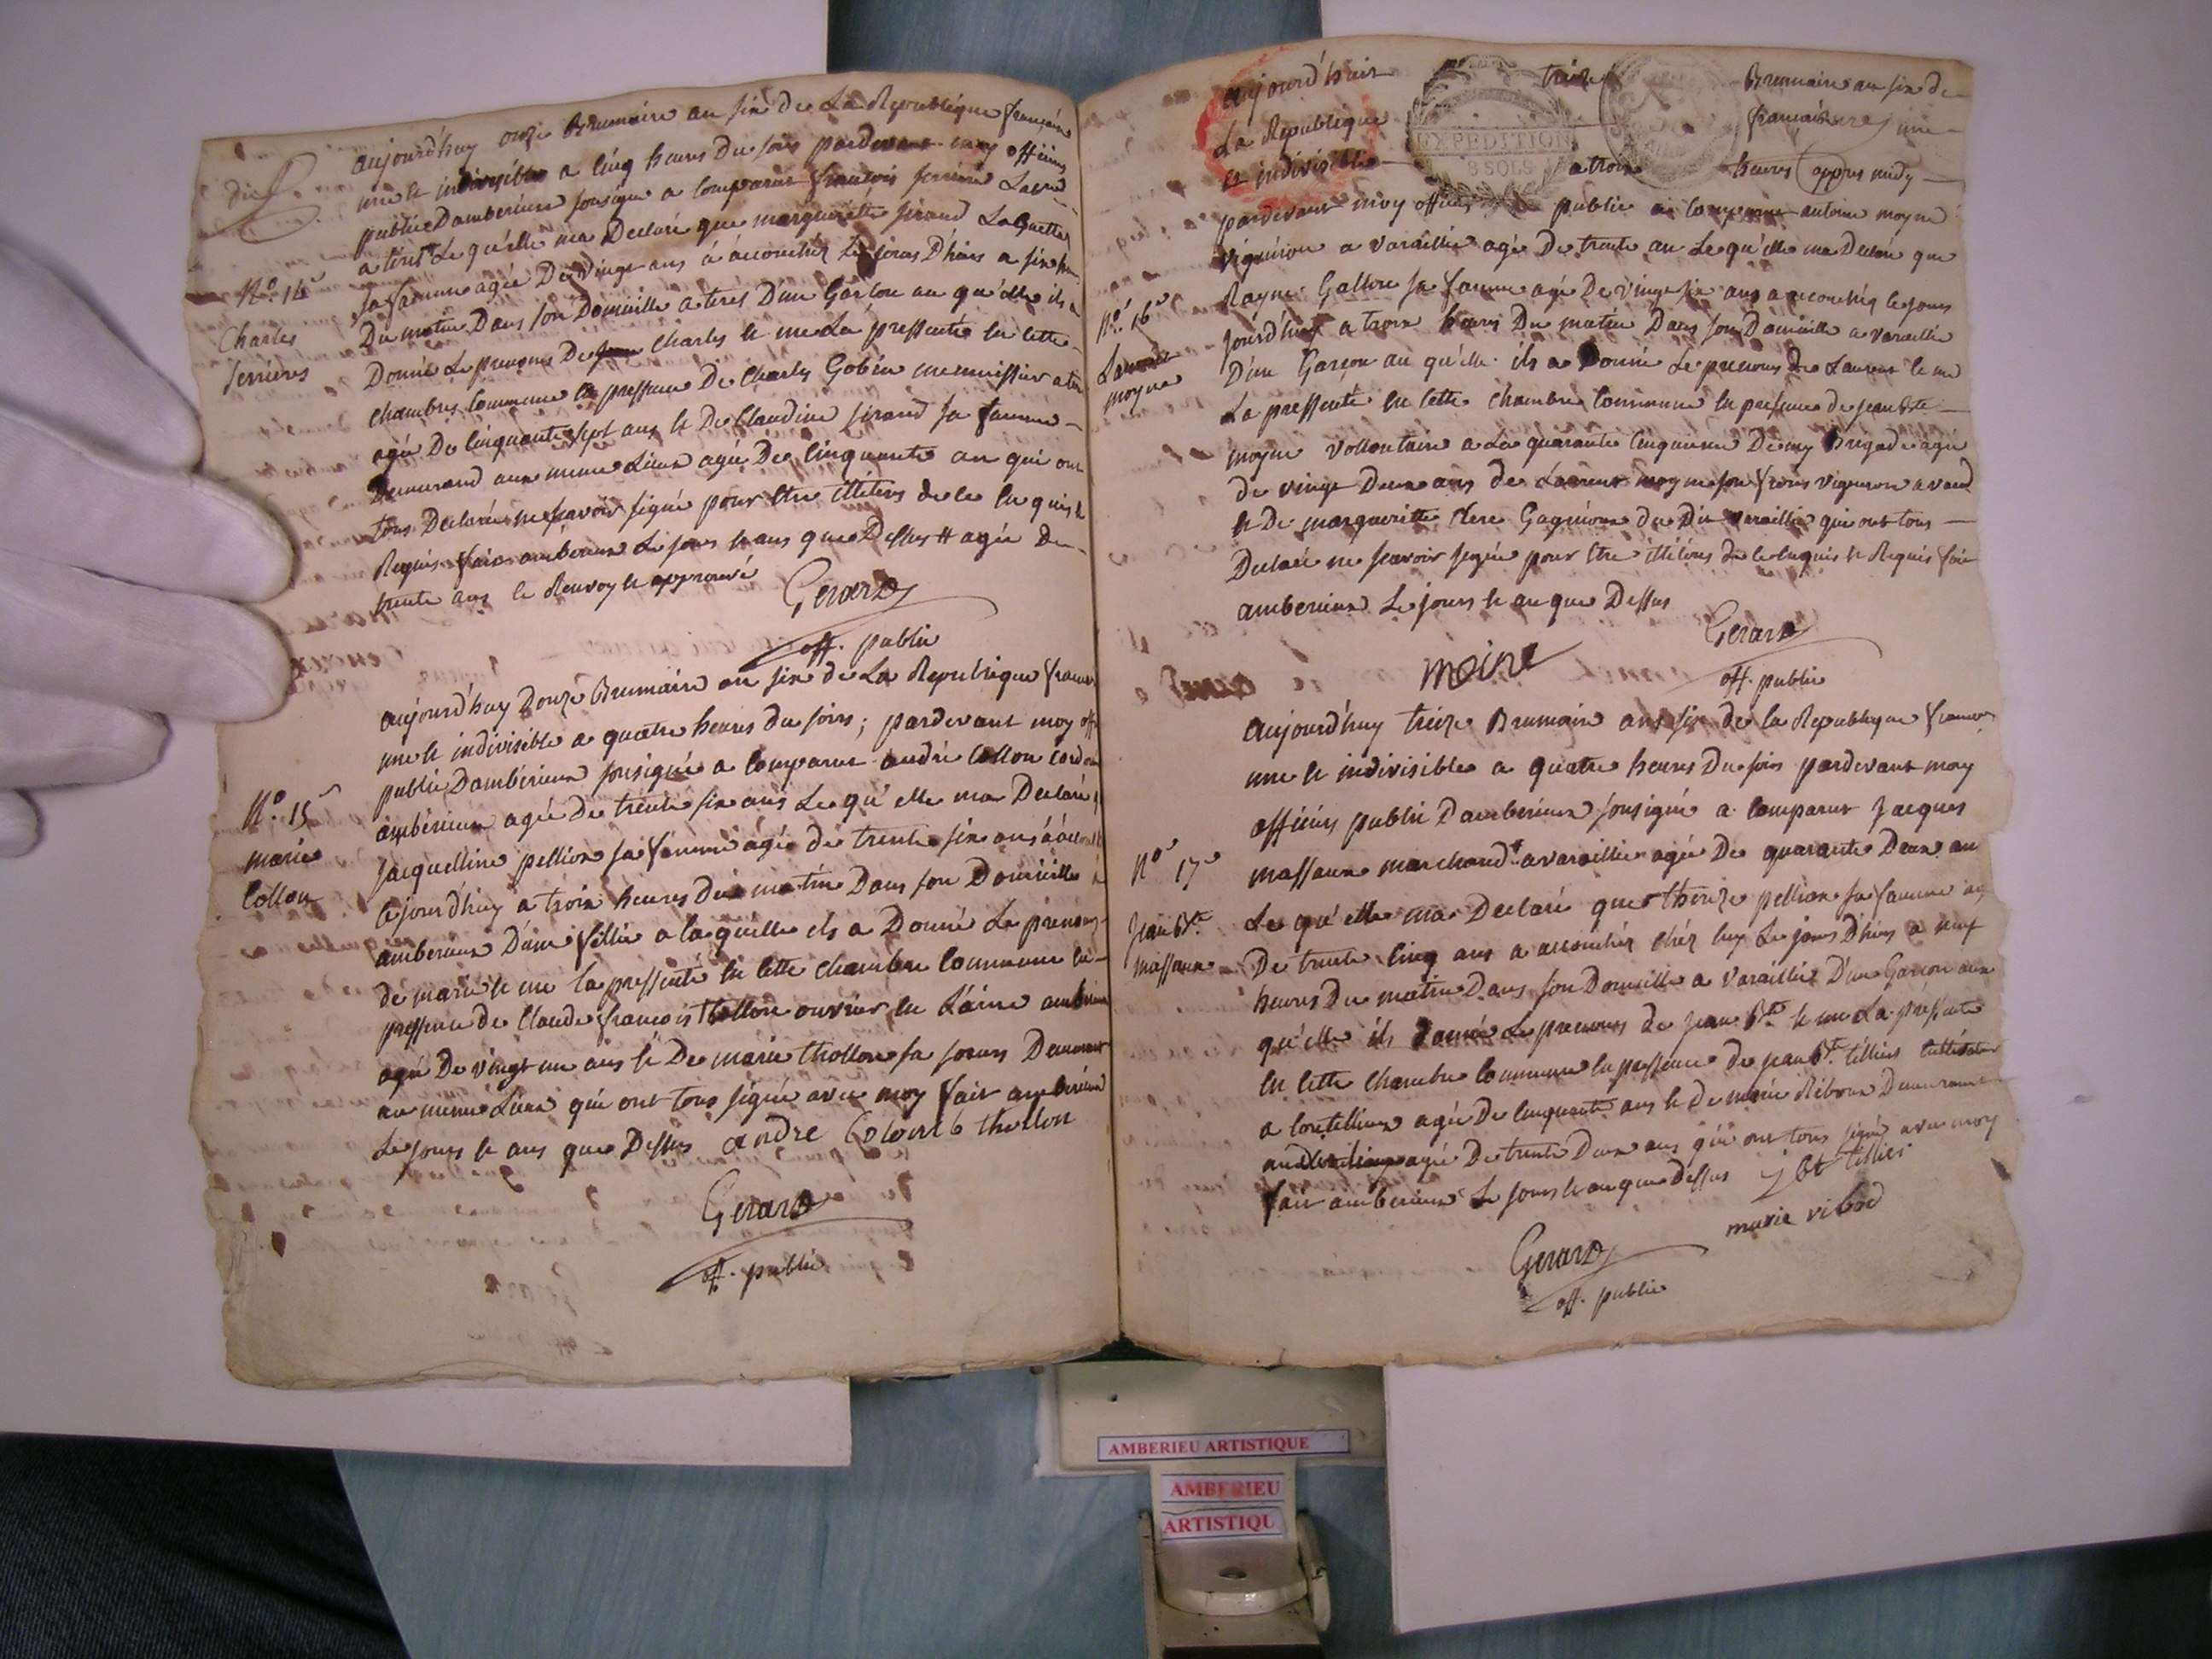 dix
aujourd'huy onze Brumaire an six de La Republique française
une et indivisible a cinq heures du soir pardevant moy officiers
public Damberieux sousigne a comparus francois ferriere
a tiret Le qu'elle ma Declaré que marguerite sirand Laquelle
N.o 14
sa famme agée De vingt ans a accouchéz Le jours D'hiers a six
Charles
ferrieres
Du matin Dans son Domicille a tires D'un Garcon au qu'elle ils a
Donné Le prenoms De Charles et me La pressenté en cette
chambres Commune en pressence De Charles Gobin menuissier a
agée De cinquante sept ans et De Claudine sirand sa famme
Demeurand aux meme Lieux agée De cinquante an qui ont
tous Declarée ne savoir signé pour etre illiters de ce enquis et
Requis fait amberieux Le jours et ans que Dessus # agée De
trente ans le Renvoy et approuvé
Gerard
off. public
aujourd'huy Douze Brumaire an six de La Republique
une et indivisible a quatre heures du soirs; pardevant moy
public Dambérieux sousignée a comparut andré collon
N.o 15
ambérieux agée de trente six ans Le qu'elle ma Declaré
marie
collon
Jacquelline pellion sa famme agée de trente six ans a
cejourd'huy a troix heures du matin Dans son Domicille a
amberieux D'une fillie a laquelle ils a Donné Le prenoms
de marie et me la pressenté en cette chambre Commune en
pressence de Claude francois thollon ouvrier en Laine
agée De vingt un ans et De marie thollon sa soeurs Demeurant
au meme Lieux qui ont tous signée avec moy fait amberieux
Le jours et ans que Dessus andre thollon
Gerard
off. public
aujourd'huit treize Brumaire an six de
La Republique française une
EXPEDITION
8 SOLS
et indivisible a troix heures appres midy
pardevant moy officiers public a comparut antoine moyne
vigneron a vareillie agée De trente an Le qu'elle ma Declaré que
Rayne Gallon sa famme agée De vingt six ans a accouchéz le jours
N.o 16
jourd'huy a troix heures Du matin Dans son Domicille a vareille
Laurent
moyne
D'un Garcon au qu'elle ils a Donné Le prenoms de Laurent et me
La pressenté en cette chambre Commune en presence de jean Bte
moyne vollontaire a La quarante cinquieme Demy Brigade agée
de vingt Deux ans de Laurent moyne son frere vigneron
et De marguerite Gagneux du Dit vareillie qui ont tous
Declaré ne scavoir signé pour etre illitéres de ce enquis et Requis fait
amberieux Le jours et an que Dessus
moine
Gerard
off. public
aujourd'huy treize Brumaire ans six de la Republique
une et indivisible a quatre heures Du soir pardevant moy
officiers public Damberieux sousigné a comparut Jacques
N.o 17
massaux marchand a vareillie agée De quarante Deux an
jean Bte
massaux
Le qu'elle ma Declaré que therèze pellion sa famme
De trente cinq ans a accouchéz chéz luy Le jours D'hiers a neuf
heures Du matin Dans son Domicille a vareillie D'un Garcon aux
qu'elle ils Donné Le prenoms de jean Bte et me La présenté
en cette chambre Commune en pressence de jean Bte tilliers cultivateur
a agée De cinquante ans et de marie Demeurant
agée De trente Deux ans qui ont tous signé avec moy
fait ambérieux Le jours et an que dessus
j bt tillier
marie vibod
Gerard
off. public
AMBERIEU ARTISTIQUE
AMBERIEU
ARTISTIQU